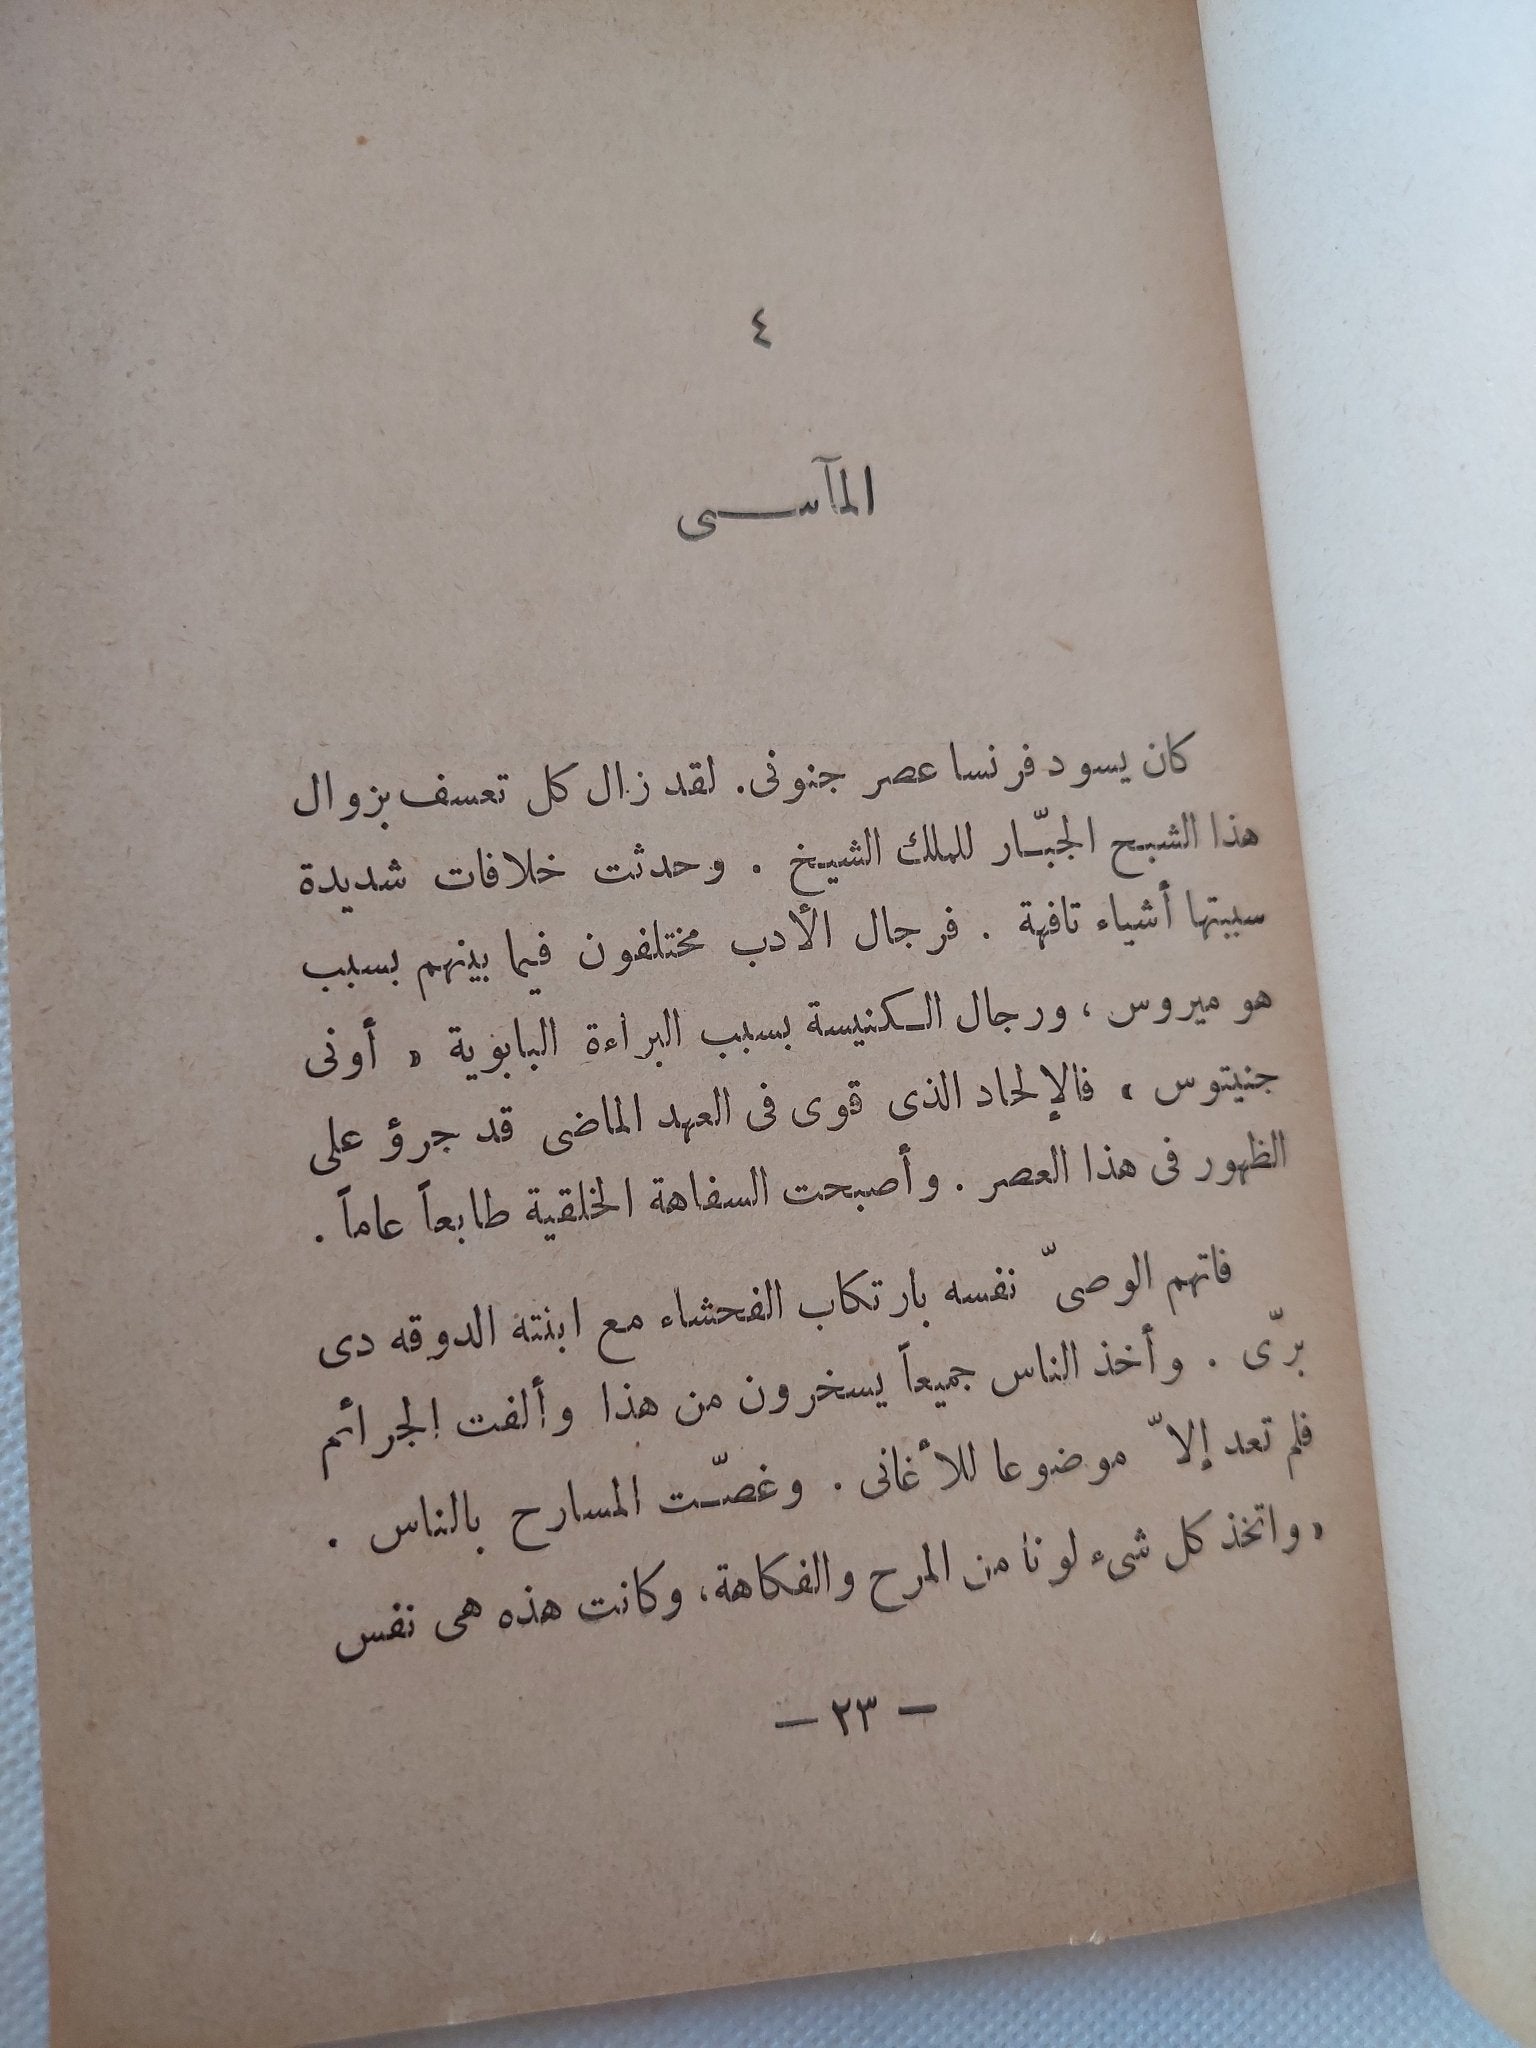 ٤
المآسى
كان يسود فرنسا عصر جنونى. لقد زال كل تعسف بزوال
هذا الشبح الجبّار للملك الشيخ . وحدثت خلافات شديدة
سببتها أشياء تافهة . فرجال الأدب مختلفون فيما بينهم بسبب
هوميروس ، ورجال الكنيسة بسبب البراءة البابوية « أونى
جنيتوس » فالإلحاد الذى قوى فى العهد الماضى قد جرؤ على
الظهور فى هذا العصر . وأصبحت السفاهة الخلقية طابعاً عاماً .
فاتهم الوصىّ نفسه بارتكاب الفحشاء مع ابنته الدوقه دى
برّى . وأخذ الناس جميعاً يسخرون من هذا وألفت الجرائم
فلم تعد إلاّ موضوعا للأغانى . وغصّت المسارح بالناس .
« واتخذ كل شىء لوناً من المرح والفكاهة، وكانت هذه هى نفس
— ٢٣ —